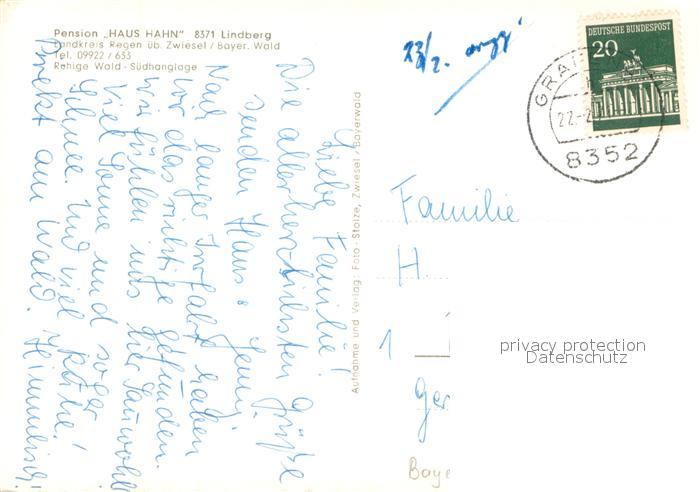 Pension „HAUS HAHN" 8371 Lindberg
Landkreis Regen üb. Zwiesel / Bayer. Wald
Tel. 09922 / 633
Ruhige Wald - Südhanglage
Liebe Familie!
Die allerherzlichsten Grüße
senden Hans u. Jenny.
Nach langer Irrfahrt haben
wir das richtige gefunden.
Wir fühlen uns hier sauwohl
Viel Sonne und sogar
Schnee. Und viel Ruhe!
Direkt am Wald.
Aufnahme und Verlag: Foto - Stolze, Zwiesel / Bayerwald
23/2.
DEUTSCHE BUNDESPOST
20
GRA
22.-2
8352
Familie
H.
1
Ger
Baye
privacy protection
Datenschutz